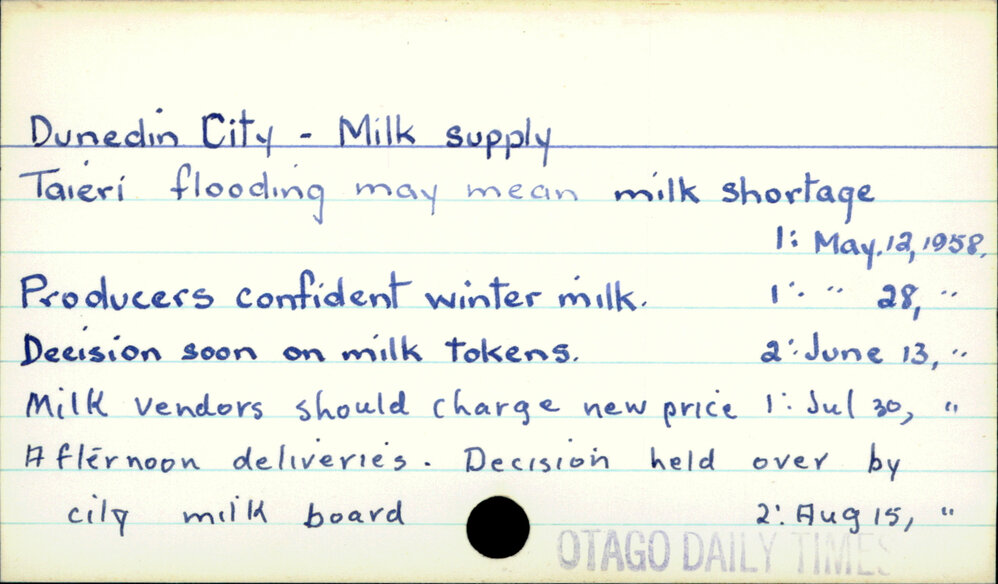 Dunedin City - Milk supply
Taieri flooding may mean milk shortage
1: May.12, 1958.
Producers confident winter milk. 1: " 28, "
Decision soon on milk tokens. 2: June 13, "
Milk vendors should charge new price 1: Jul 30, "
Afternoon deliveries. Decision held over by
city milk board 2: Aug 15, "
OTAGO DAILY TIMES